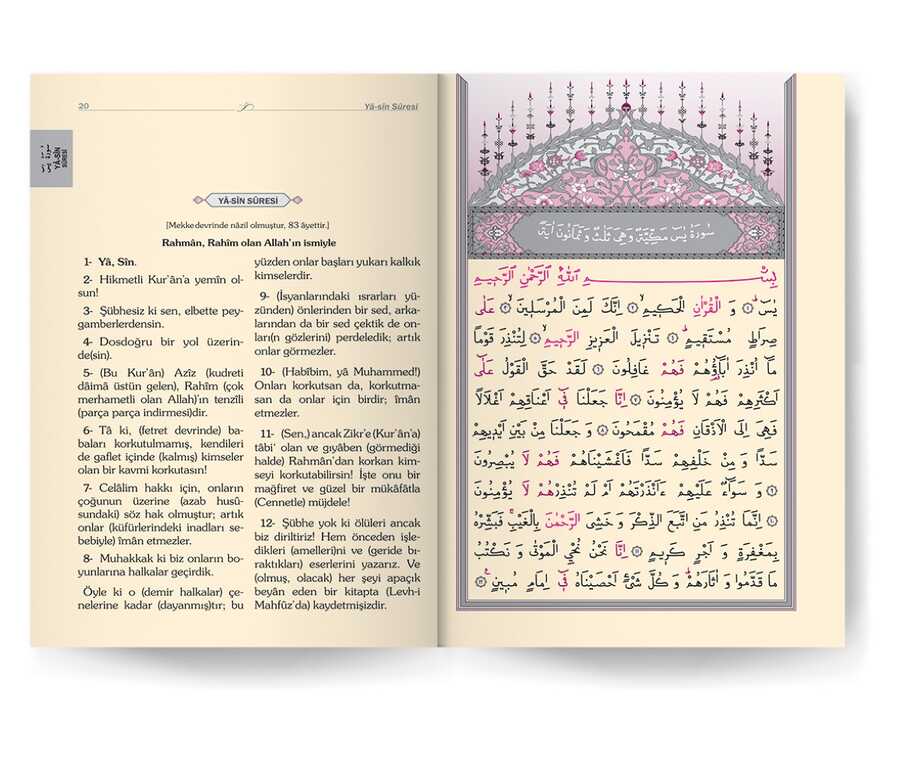 20
Yâ-sîn Sûresi
YÂ-SÎN
SÛRESİ
YÂ-SÎN SÛRESİ
[Mekke devrinde nâzil olmuştur, 83 âyettir.]
Rahmân, Rahîm olan Allah'ın ismiyle
1- Yâ, Sîn.
2- Hikmetli Kur'ân'a yemîn ol-
sun!
3- Şübhesiz ki sen, elbette pey-
gamberlerdensin.
4- Dosdoğru bir yol üzerin-
de(sin).
5- (Bu Kur'ân) Azîz (kudreti
dâimâ üstün gelen), Rahîm (çok
merhametli olan Allah)'ın tenzîli
(parça parça indirmesi)dir.
6- Tâ ki, (fetret devrinde) ba-
baları korkutulmamış, kendileri
de gaflet içinde (kalmış) kimseler
olan bir kavmi korkutasın!
7- Celâlim hakkı için, onların
çoğunun üzerine (azab husû-
sundaki) söz hak olmuştur; artık
onlar (küfürlerindeki inadları se-
bebiyle) îmân etmezler.
8- Muhakkak ki biz onların bo-
yunlarına halkalar geçirdik.
Öyle ki o (demir halkalar) çe-
nelerine kadar (dayanmış)tır; bu
yüzden onlar başları yukarı kalkık
kimselerdir.
9- (İsyanlarındaki ısrarları yü-
zünden) önlerinden bir sed, arka-
larından da bir sed çektik de on-
ları(n gözlerini) perdeledik; artık
onlar görmezler.
10- (Habîbim, yâ Muhammed!)
Onları korkutsan da, korkutma-
san da onlar için birdir; îmân
etmezler.
11- (Sen,) ancak Zikr'e (Kur'ân'a)
tâbi' olan ve gıyâben (görmediği
halde) Rahmân'dan korkan kim-
seyi korkutabilirsin! İşte onu bir
mağfiret ve güzel bir mükâfâtla
(Cennetle) müjdele!
12- Şübhe yok ki ölüleri ancak
biz diriltiriz! Hem önceden işle-
dikleri (amelleri)ni ve (geride bı-
raktıkları) eserlerini yazarız. Ve
(olmuş, olacak) her şeyi apaçık
beyân eden bir kitapta (Levh-i
Mahfûz'da) kaydetmişizdir.
سُورَةُ يٰسٓ مَكِّيَّةٌ وَهِيَ ثَلٰثٌ وَثَمَانُونَ اٰيَةً
بِسْمِ اللّٰهِ الرَّحْمٰنِ الرَّحِيمِ
يٰسٓ ﴿١﴾ وَ الْقُرْاٰنِ الْحَكِيمِ ﴿٢﴾ اِنَّكَ لَمِنَ الْمُرْسَلِينَ ﴿٣﴾ عَلٰى
صِرَاطٍ مُسْتَقِيمٍ ﴿٤﴾ تَنْزِيلَ الْعَزِيزِ الرَّحِيمِ ﴿٥﴾ لِتُنْذِرَ قَوْمًا
مَٓا اُنْذِرَ اٰبَٓاؤُهُمْ فَهُمْ غَافِلُونَ ﴿٦﴾ لَقَدْ حَقَّ الْقَوْلُ عَلٰٓى
اَكْثَرِهِمْ فَهُمْ لَا يُؤْمِنُونَ ﴿٧﴾ اِنَّا جَعَلْنَا فِٓي اَعْنَاقِهِمْ اَغْلَالًا
فَهِيَ اِلَى الْاَذْقَانِ فَهُمْ مُقْمَحُونَ ﴿٨﴾ وَ جَعَلْنَا مِنْ بَيْنِ اَيْدِيهِمْ
سَدًّا وَ مِنْ خَلْفِهِمْ سَدًّا فَاَغْشَيْنَاهُمْ فَهُمْ لَا يُبْصِرُونَ
﴿٩﴾ وَ سَوَٓاءٌ عَلَيْهِمْ ءَاَنْذَرْتَهُمْ اَمْ لَمْ تُنْذِرْهُمْ لَا يُؤْمِنُونَ
﴿١٠﴾ اِنَّمَا تُنْذِرُ مَنِ اتَّبَعَ الذِّكْرَ وَ خَشِيَ الرَّحْمٰنَ بِالْغَيْبِ فَبَشِّرْهُ
بِمَغْفِرَةٍ وَ اَجْرٍ كَرِيمٍ ﴿١١﴾ اِنَّا نَحْنُ نُحْيِ الْمَوْتٰى وَ نَكْتُبُ
مَا قَدَّمُوا وَ اٰثَارَهُمْ وَ كُلَّ شَيْءٍ اَحْصَيْنَاهُ فِٓي اِمَامٍ مُبِينٍ ﴿١٢﴾